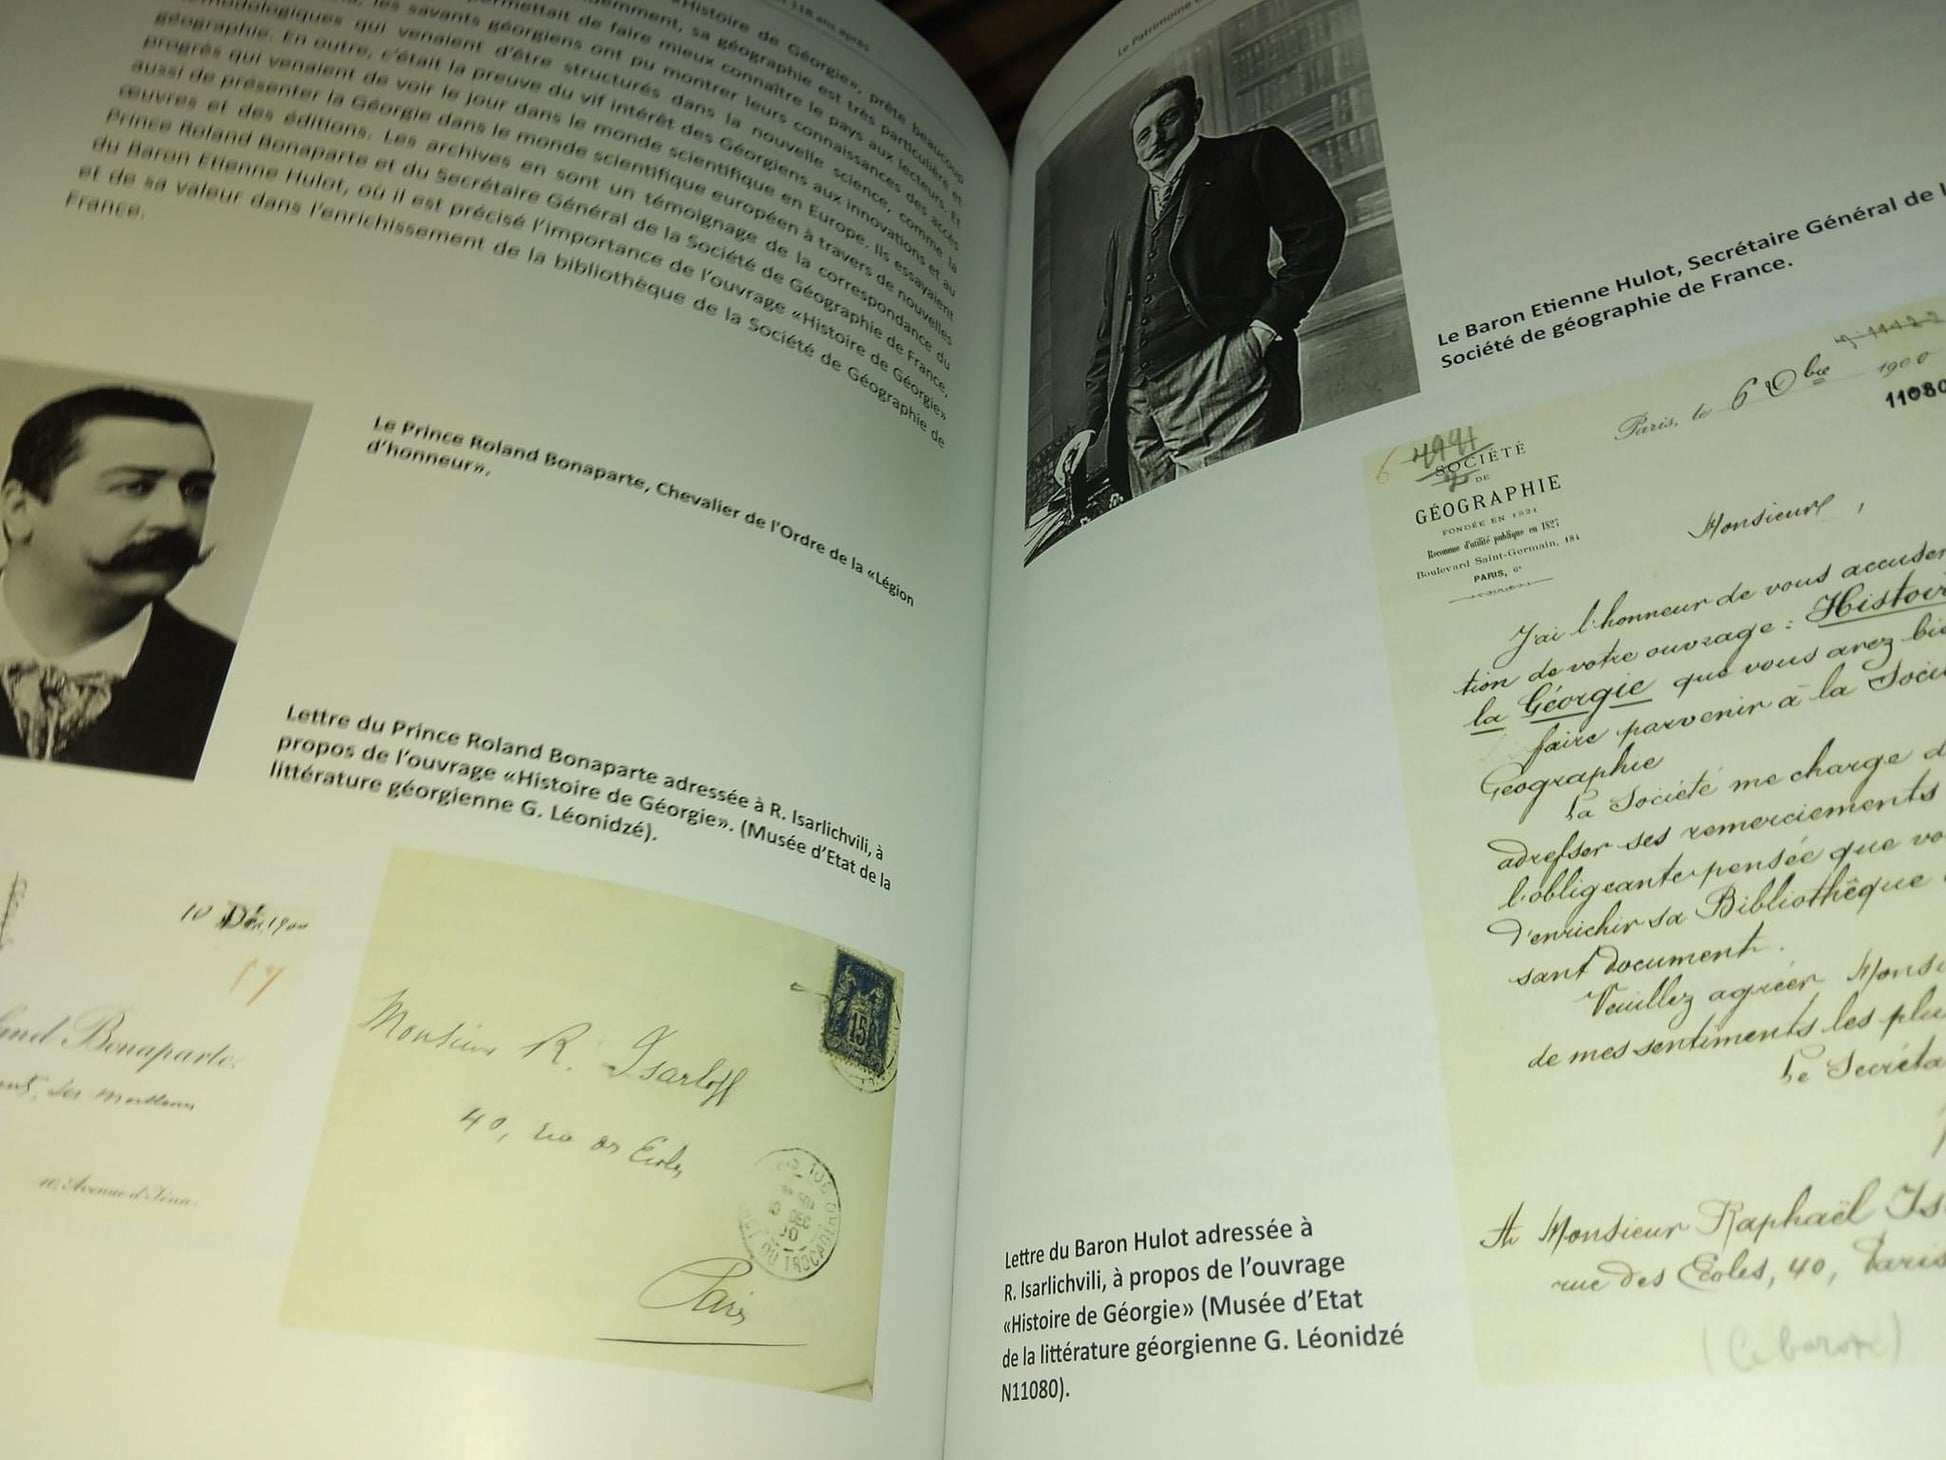 118 ans après
«Histoire de Géorgie», prête beaucoup
sa géographie est très particulière et
permettait de faire mieux connaître le pays aux lecteurs. Et
les savants géorgiens ont pu montrer leurs connaissances des accès
qui venaient d'être structurés dans la nouvelle science, comme la
géographie. En outre, c'était la preuve du vif intérêt des Géorgiens aux innovations et au
progrès qui venaient de voir le jour dans le monde scientifique en Europe. Ils essayaient
aussi de présenter la Géorgie dans le monde scientifique européen à travers de nouvelles
œuvres et des éditions. Les archives en sont un témoignage de la correspondance du
Prince Roland Bonaparte et du Secrétaire Général de la Société de Géographie de France,
du Baron Etienne Hulot, où il est précisé l'importance de l'ouvrage «Histoire de Géorgie»
et de sa valeur dans l'enrichissement de la bibliothèque de la Société de Géographie de
France.
Le Prince Roland Bonaparte, Chevalier de l'Ordre de la «Légion
d'honneur».
Lettre du Prince Roland Bonaparte adressée à R. Isarlichvili, à
propos de l'ouvrage «Histoire de Géorgie». (Musée d'Etat de la
littérature géorgienne G. Léonidzé).
10 Déc. 1900
Bonaparte
10, Avenue d'Iéna.
15
Monsieur R. Isarloff
40, rue des Ecoles
Paris
TROCADERO
Le Patrimoine
Le Baron Etienne Hulot, Secrétaire Général de
Société de géographie de France.
Paris, le 6 Xbre 1900
11080
SOCIÉTÉ
DE
GÉOGRAPHIE
FONDÉE EN 1821
Reconnue d'utilité publique en 1827
Boulevard Saint-Germain, 184
PARIS, 6e
Monsieur,
J'ai l'honneur de vous accuser
tion de votre ouvrage : Histoir
la Géorgie que vous avez bie
faire parvenir à la Soci
Géographie
La Société me charge d
adresser ses remerciements
l'obligeante pensée que vo
d'enrichir sa Bibliothèque
sant document.
Veuillez agréer Monsi
de mes sentiments les plu
Le Secréta
A Monsieur Raphaël Is
rue des Ecoles, 40, Paris
(Le baron)
Lettre du Baron Hulot adressée à
R. Isarlichvili, à propos de l'ouvrage
«Histoire de Géorgie» (Musée d'Etat
de la littérature géorgienne G. Léonidzé
N11080).